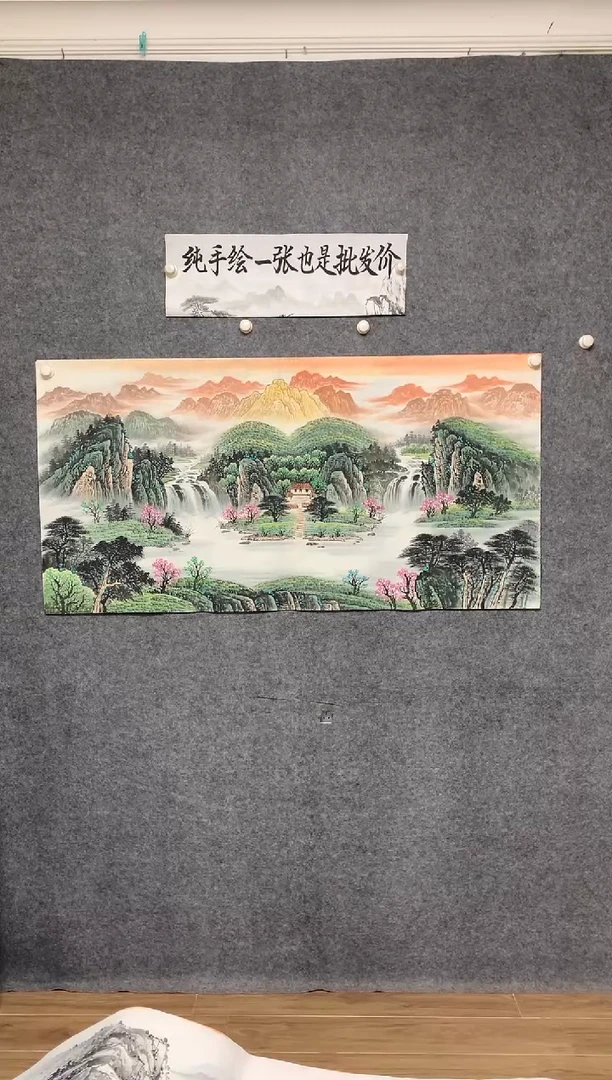 纯手绘一张也是批发价